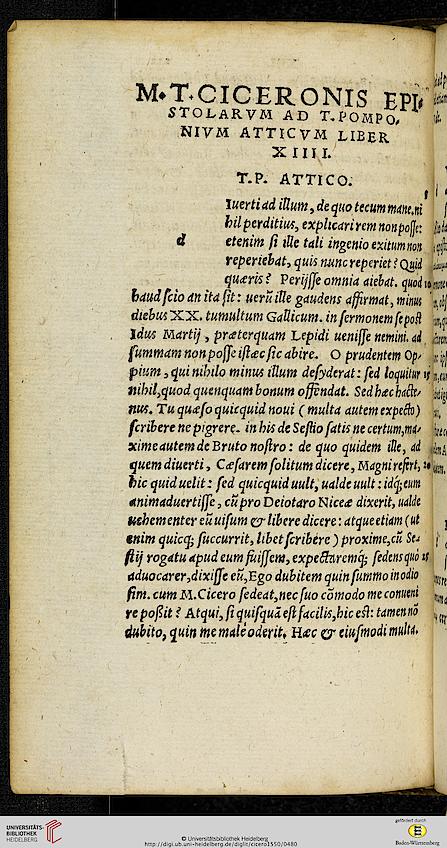 M.T.CICERONIS EPI-
STOLARVM AD T.POMPO,
NIVM ATTICVM LIBER
XIIII.
T.P. ATTICO.
d
Iuerti ad illum, de quo tecum mane. ni
hil perditius, explicari rem non posse:
etenim si ille tali ingenio exitum non
reperiebat, quis nunc reperiet? Quid
quæris? Perijsse omnia aiebat. quod 10
haud scio an ita sit: uerũ ille gaudens affirmat, minus
diebus XX. tumultum Gallicum. in sermonem se post
Idus Martij, præterquam Lepidi uenisse nemini. ad
summam non posse istæc sic abire. O prudentem Op-
pium, qui nihilo minus illum desyderat: sed loquitur 15
nihil, quod quenquam bonum offendat. Sed hæc hacte-
nus. Tu quæso quicquid noui (multa autem expecto)
scribere ne pigrere. in his de Sestio satis ne certum, ma-
xime autem de Bruto nostro: de quo quidem ille, ad
quem diuerti, Cæsarem solitum dicere, Magni refert, 20
hic quid uelit: sed quicquid uult, ualde uult: idq́; eum
animaduertisse, cũ pro Deiotaro Niceæ dixerit, ualde
uehementer eũ uisum & libere dicere: atque etiam (ut
enim quicq́; succurrit, libet scribere) proxime, cũ Se-
stij rogatu apud eum fuissem, expectaremq́; sedens quo 25
aduocarer, dixisse eũ, Ego dubitem quin summo in odio
sim. cum M.Cicero sedeat, nec suo cõmodo me conueni
re poßit? Atqui, si quisquã est facilis, hic est: tamen nõ
dubito, quin me male oderit. Hæc & eiusmodi multa.
UNIVERSITÄTS-
BIBLIOTHEK
HEIDELBERG
© Universitätsbibliothek Heidelberg
http://digi.ub.uni-heidelberg.de/diglit/cicero1550/0480
gefördert durch
Baden-Württemberg